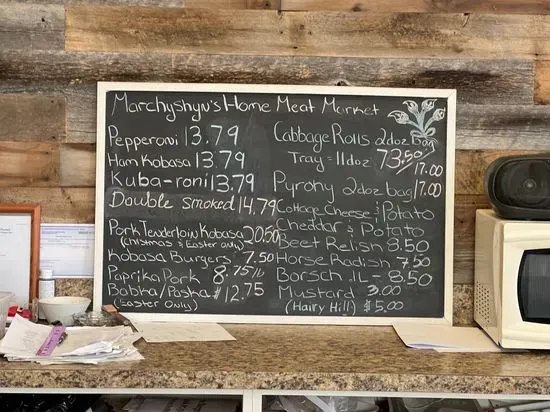 Marchyshyn's Home Meat Market
Pepperoni 13.79
Ham Kobasa 13.79
Kuba-roni 13.79
Double Smoked 14.79
Pork Tenderloin Kobasa 20.50
(Christmas & Easter only)
Kobasa Burgers 7.50
Paprika Pork 8.75/lb
Babka/Paska $12.75
(Easter Only)
Cabbage Rolls 2doz bag
Tray = 11doz 73.50/17.00
Pyrohy 2doz bag 17.00
Cottage Cheese & Potato
Cheddar & Potato
Beet Relish 8.50
Horse Radish 7.50
Borsch 1L - 8.50
Mustard 3.00
(Hairy Hill) $5.00